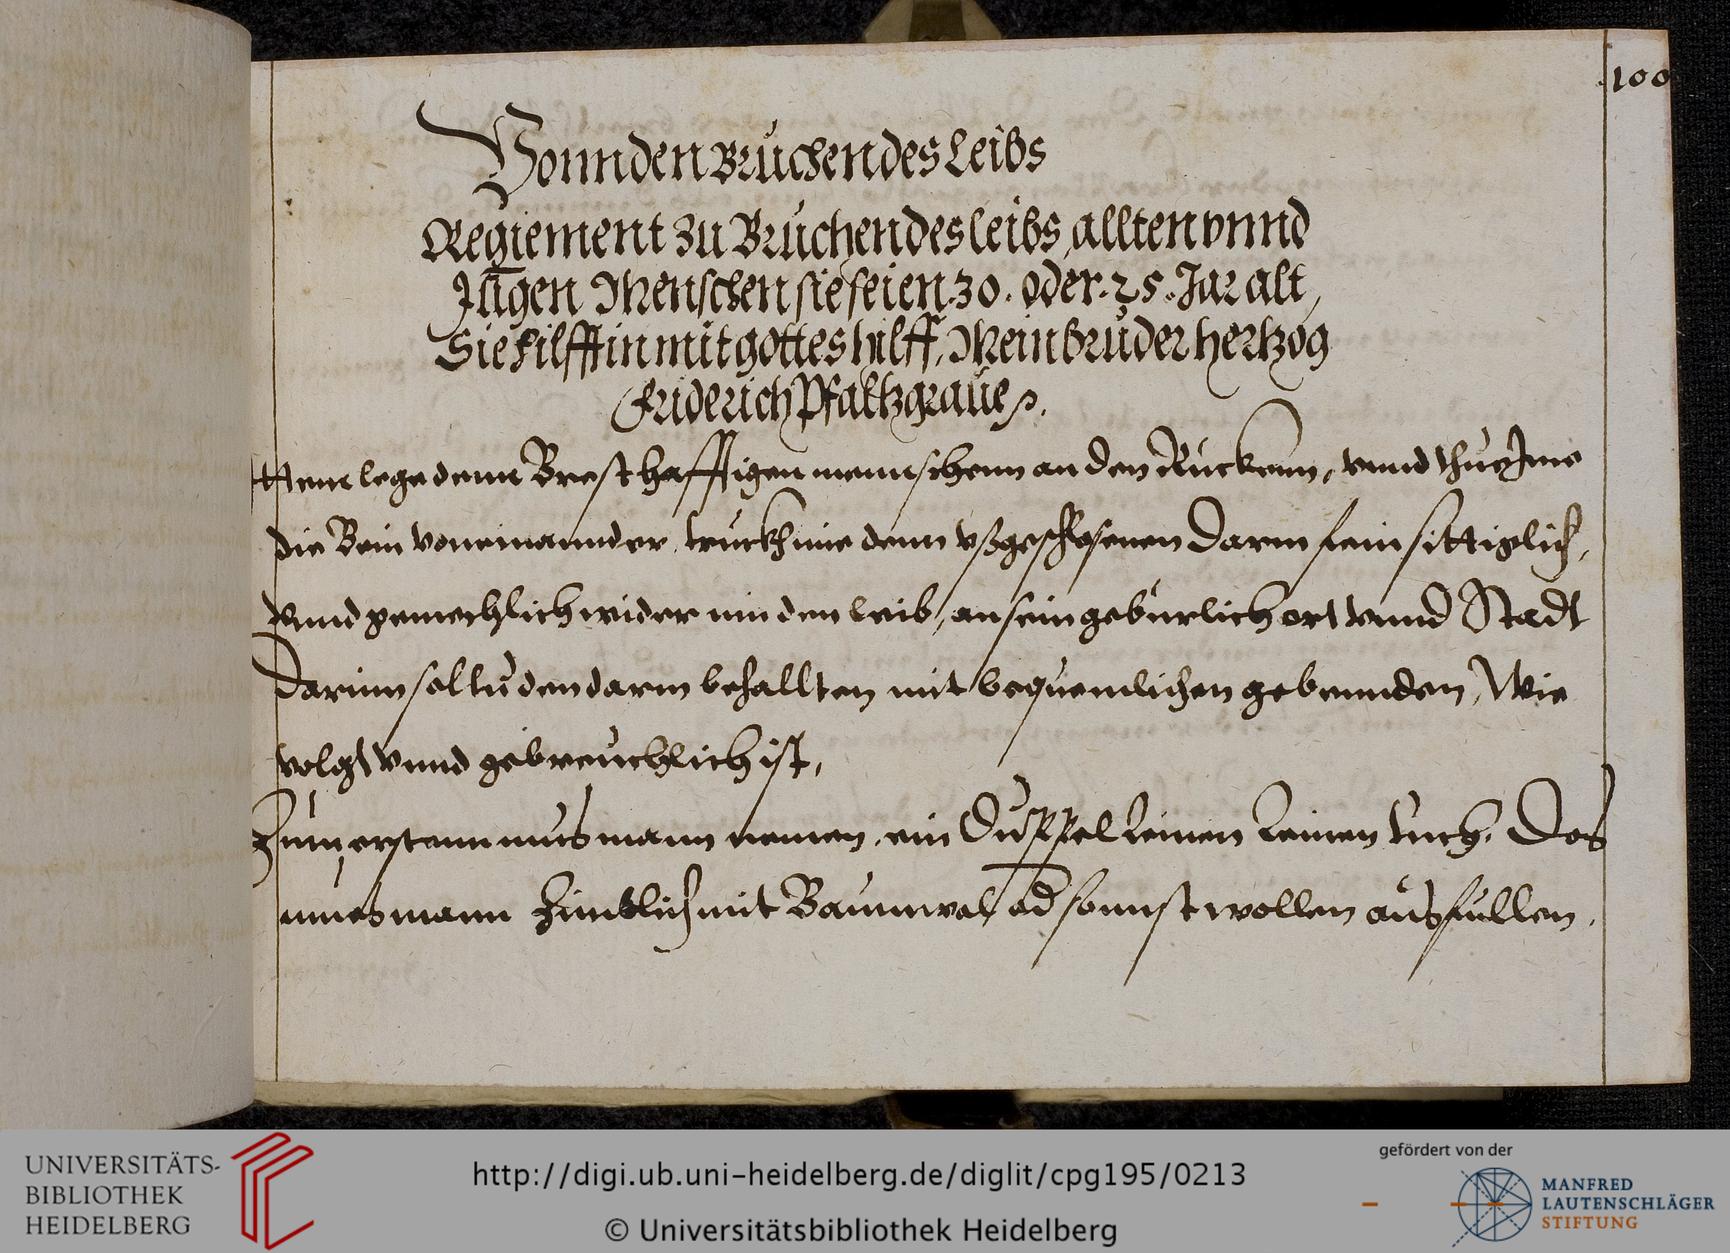 100
Vonn den Brüchen des Leibs
Regiement zu Brüchen des leibs, allten vnnd
Jūgen Menschen sie seien 30. oder. 25. Jar alt,
Sie hilfft in mit gottes hilff, Mein brüder hertzog
Friderich Pfaltzgraue
Item lege denn Bresthafftigen mennschenn an den Ruckenn, vnnd thue Ime
die Bein voneinannder, truckh ime denn vßgeschossenen Darm fein sittiglich,
vnnd gemechlich wider inn den leib, an sein gebürlich ort vnnd Stadt
Darinn soltu den darm behallten mit bequemlichen gebennden, Wie
volgt vnnd gebreuchlich ist,
Zum erstenn mus mann nemen, ein Duppel leinen tuch, Das
mues mann zimblich mit Baumwol od sonnst wollen ausfullen,
UNIVERSITÄTS-
BIBLIOTHEK
HEIDELBERG
http://digi.ub.uni-heidelberg.de/diglit/cpg195/0213
© Universitätsbibliothek Heidelberg
gefördert von der
MANFRED
LAUTENSCHLÄGER
STIFTUNG